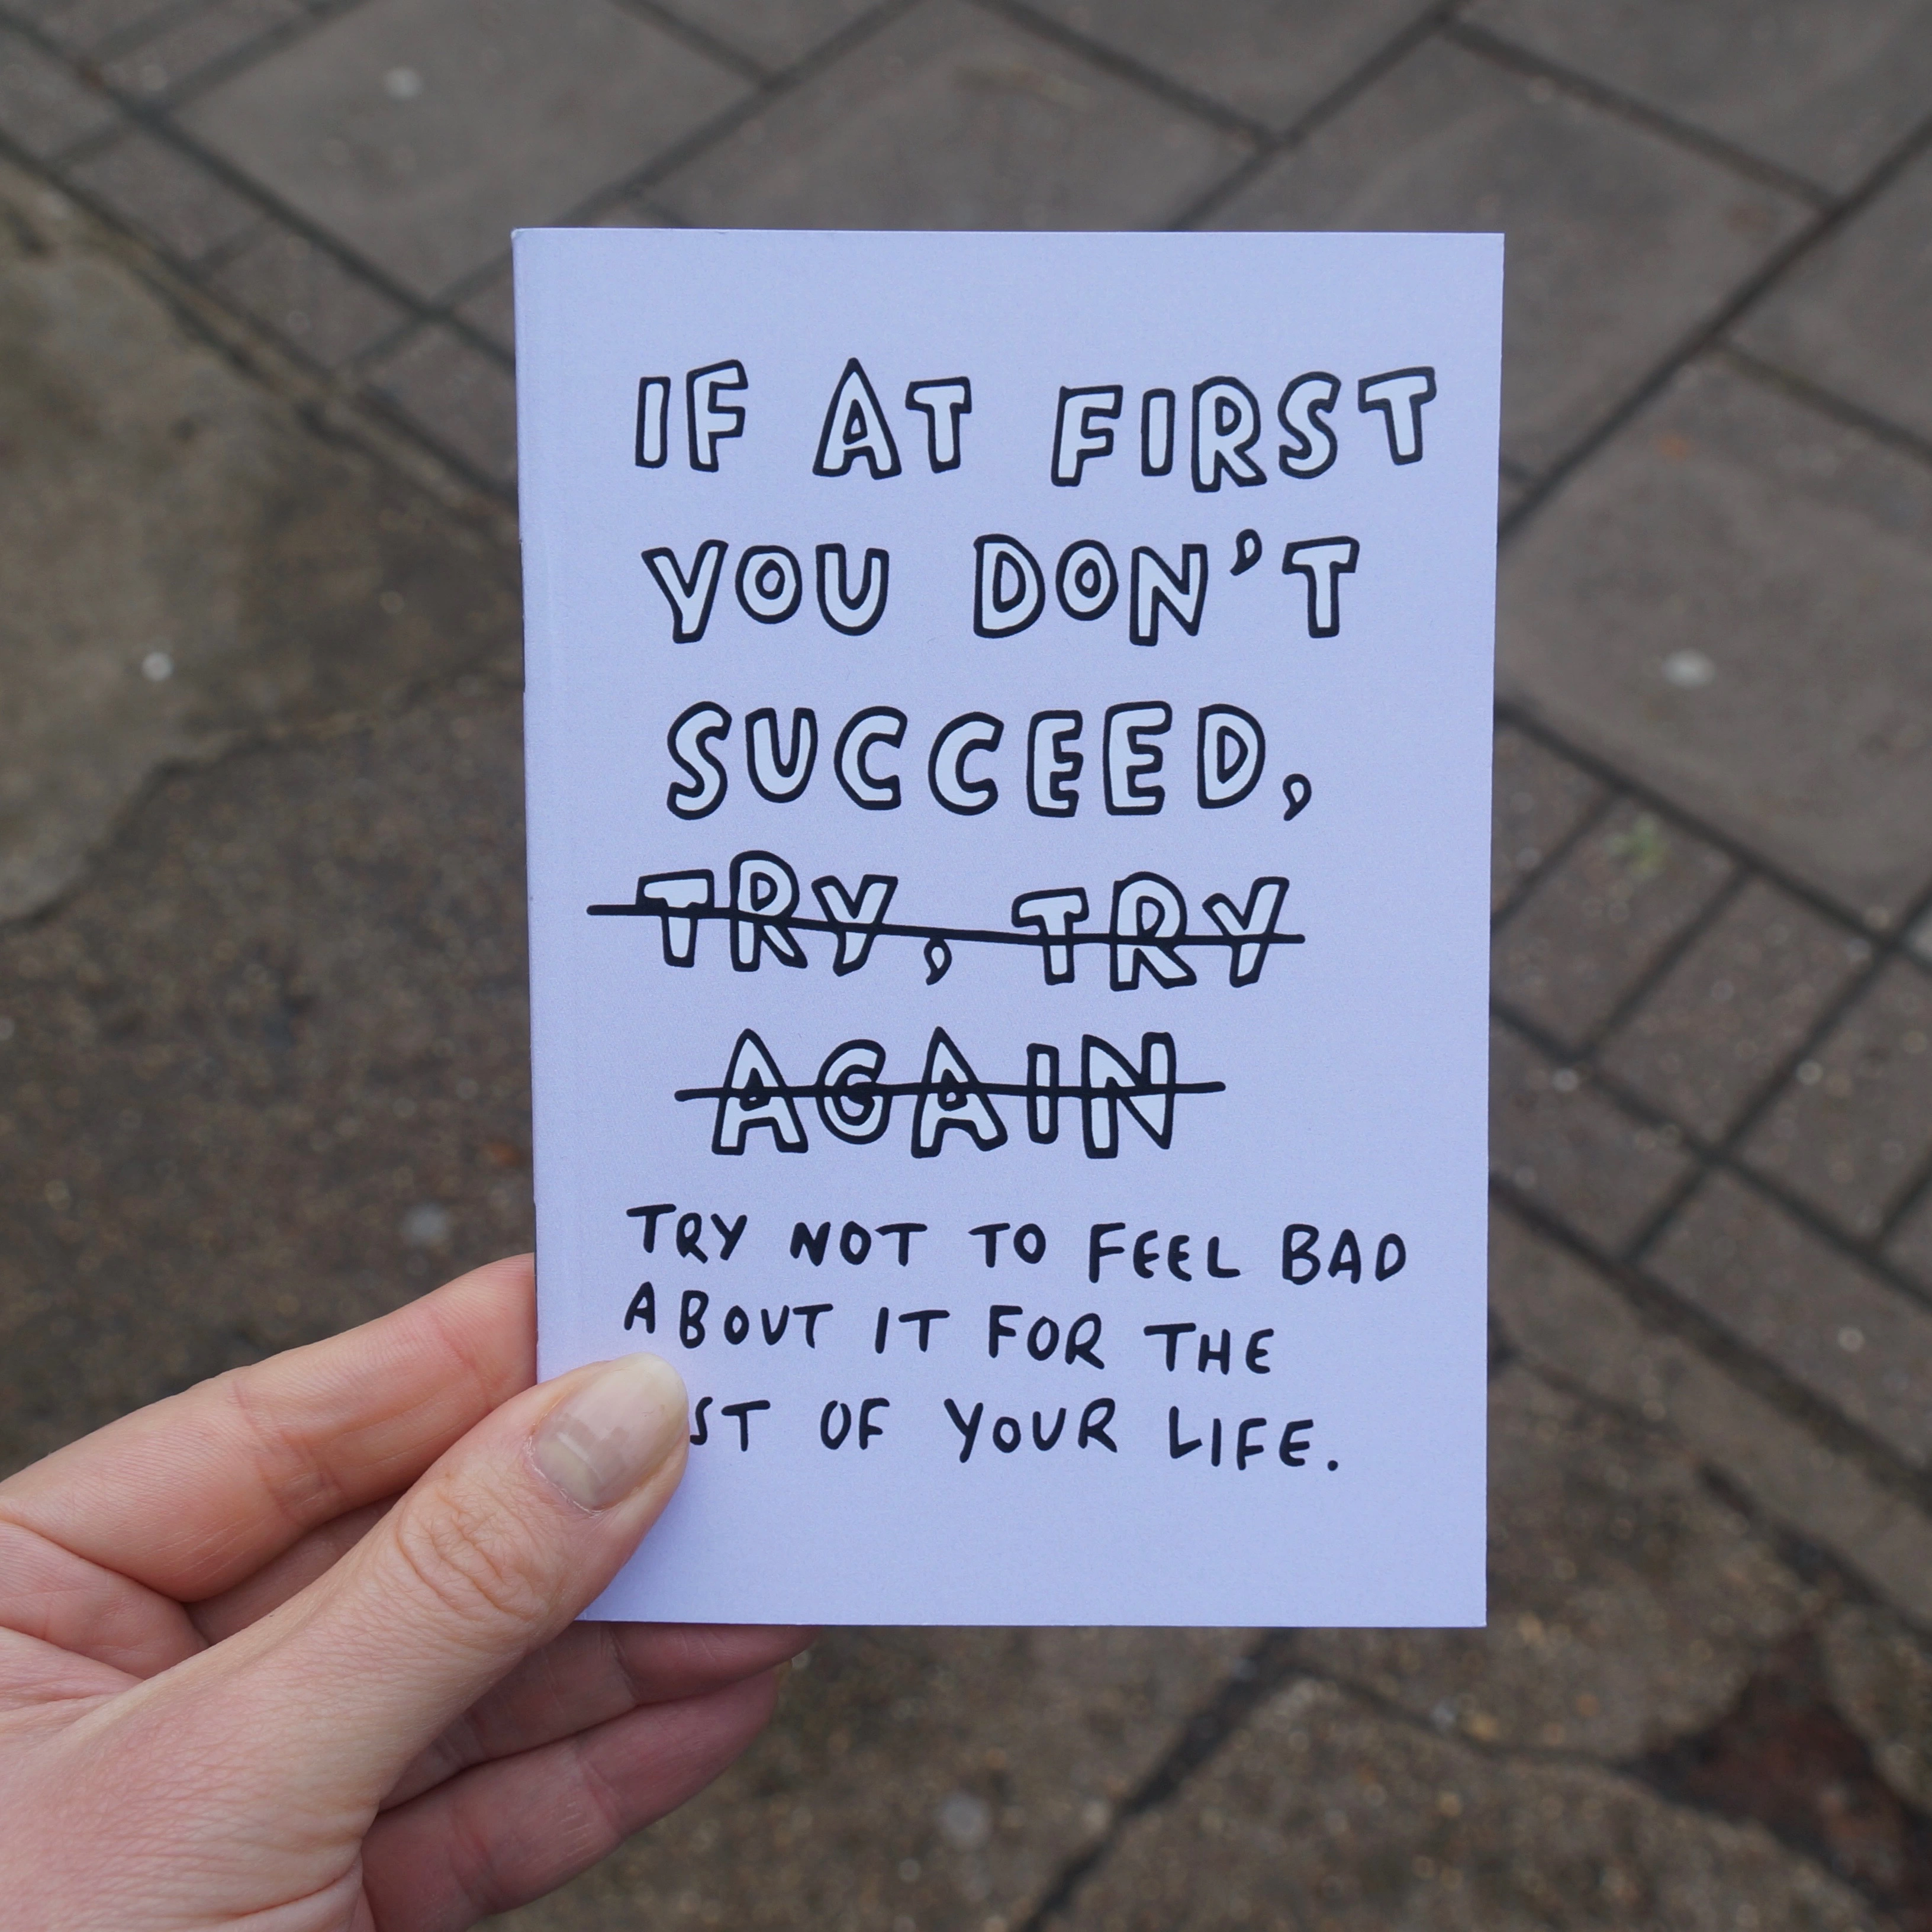 IF AT FIRST
YOU DON'T
SUCCEED,
TRY, TRY
AGAIN
TRY NOT TO FEEL BAD
ABOUT IT FOR THE
OF YOUR LIFE.